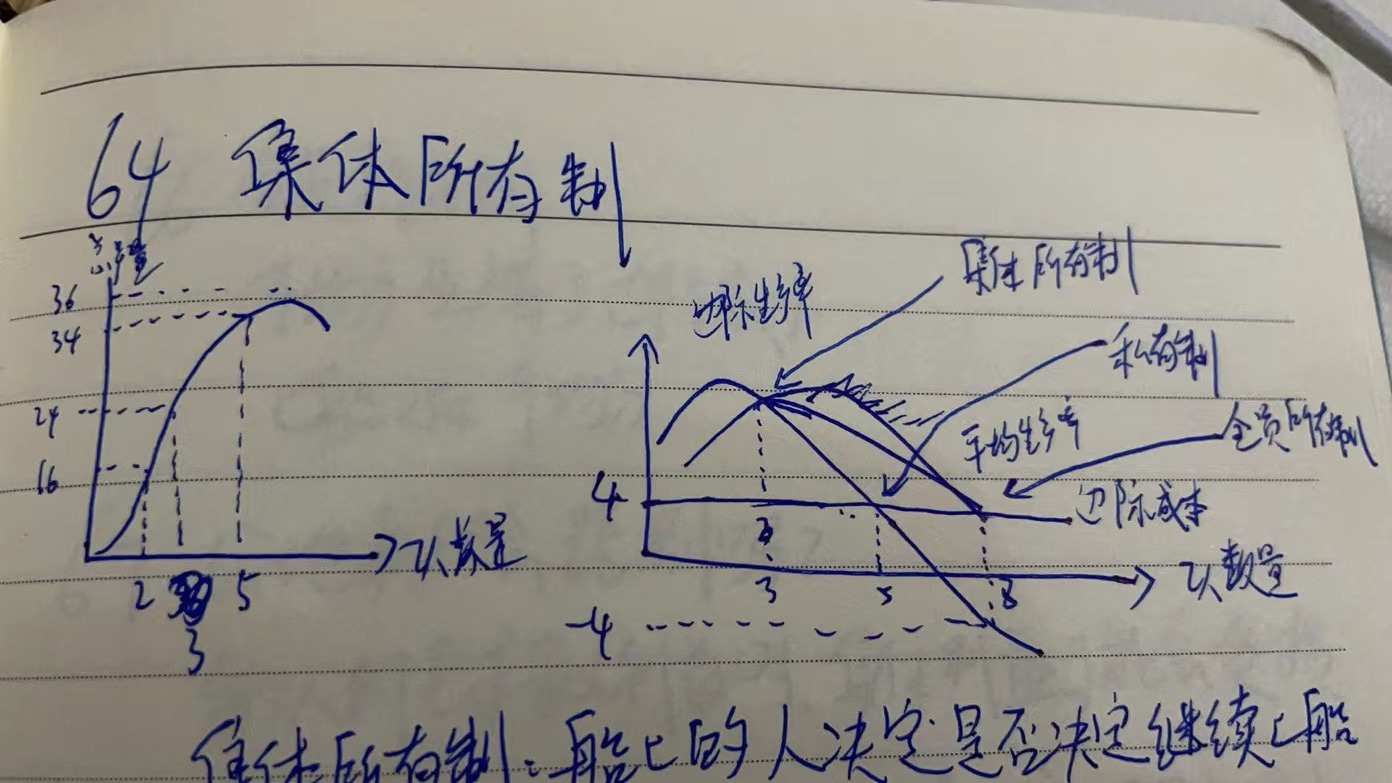 64 集体所有制
总产量
36
34
24
16
2
3
5
工人数量
边际生产率
集体所有制
私有制
平均生产率
全员所有制
4
边际成本
3
3
5
8
工人数量
-4
集体所有制:船上的人决定是否决定继续上船